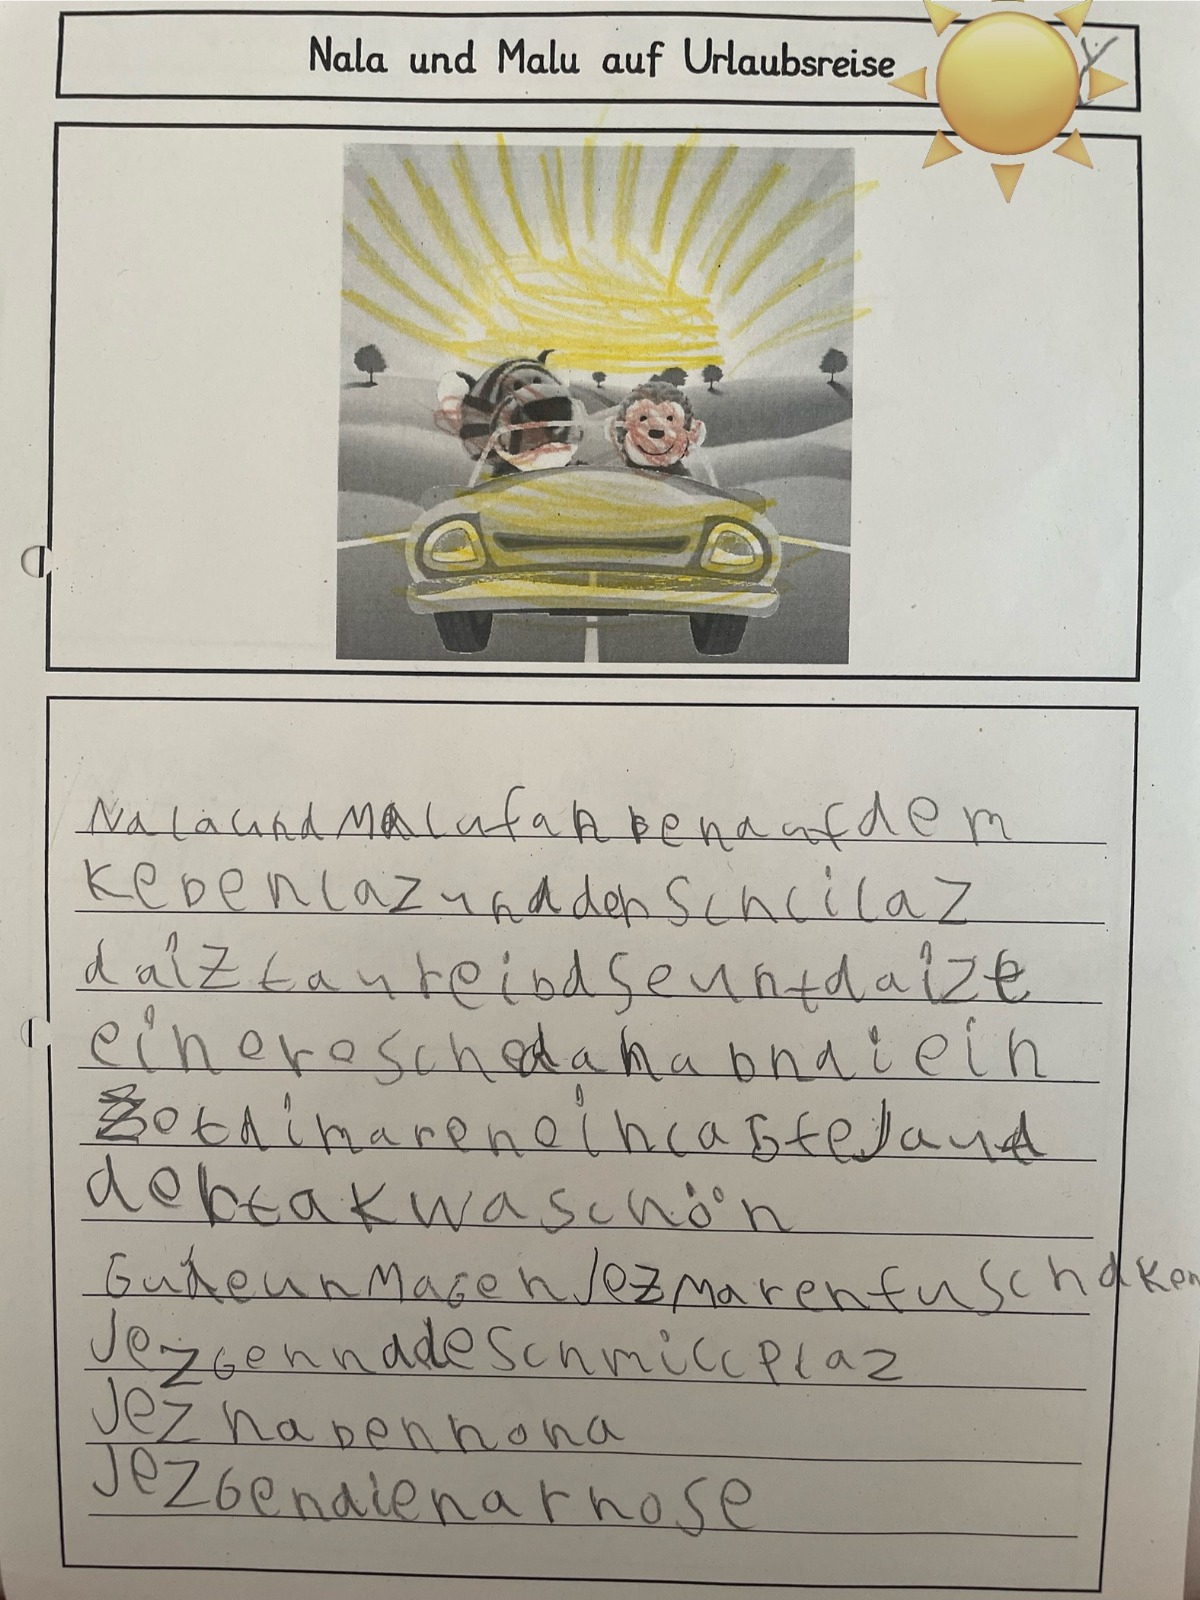 Nala und Malu auf Urlaubsreise
NalaundMalufahrenaufdem
Kebenlazunddenschcilaz
daiztaureiodseuntdaizt
eineroschedahabndiein
Zetdimareneincasteland
dertakwaschön
GuteunMagenJezmarenfuschdken
JezgennadeschmiccPlaz
Jezhabenhona
Jezgendienarhose